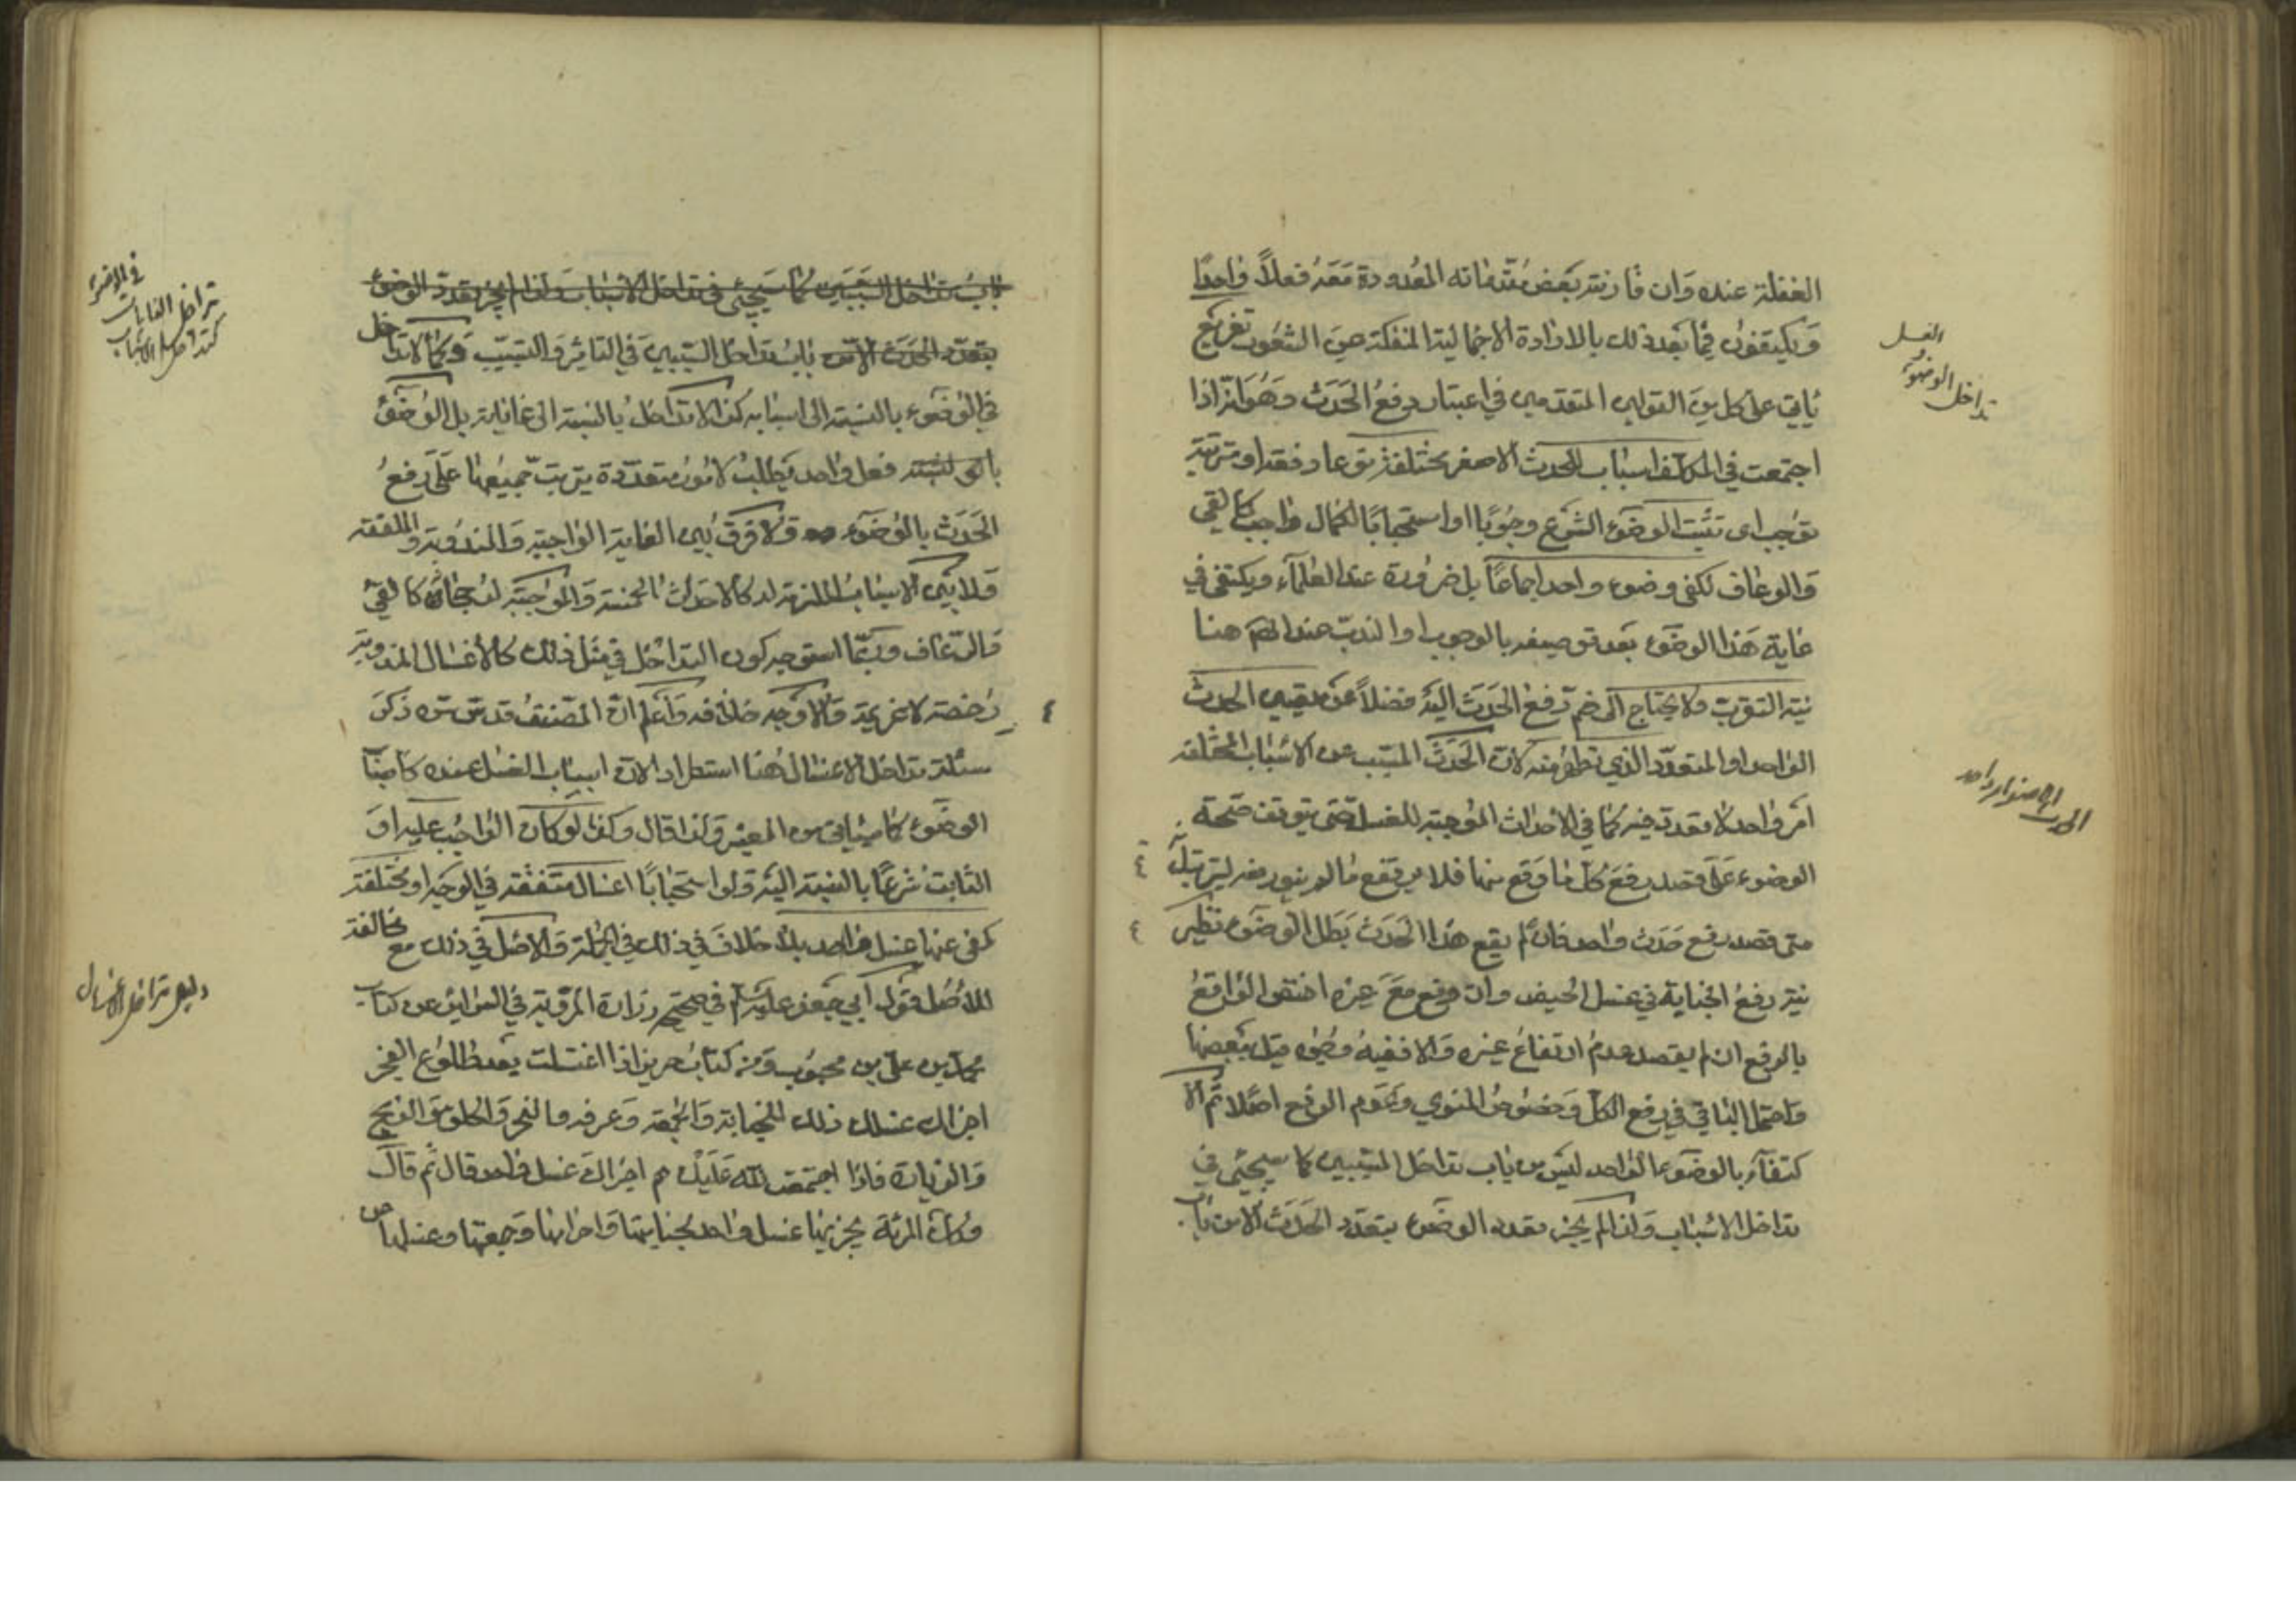 الغفلة عنه وان قارنته بعض مقدماته المعدودة معه فعلاً واحدًا
ويكتفون فيما بعد ذلك بالارادة الاجمالية المنفكة عن الشعور تفريع
ياتي على كل من القولين المتقدمين في اعتبار رفع الحدث وهو انه اذا
اجتمعت في المكلف اسباب الحدث الاصغر مختلفة نوعا دفعة او مترتبة
توجب اى تثبت الوضوء الشرع وجوبًا او استحبابًا لكمال واجب كالقي
والرعاف لكفى وضوء واحد اجماعًا بل ضرورة عند العلماء ويكتفى في
غاية هذا الوضوء بعد توصيفه بالوجوب او الندب عند المص هنا
نية التقرب ولا يحتاج الى ضم رفع الحدث اليه فضلاً عن تعيين الحدث
الواحد او المتعدد الذي تطهر منه لان الحدث المسبب عن الاسباب المختلفة
امر واحد لا تعدد فيه كما في الاحداث الموجبة للغسل حتى يتوقف صحة
الوضوء على قصد رفع كل ما وقع منها فلا يرتفع ما لم ينو رفعه
متى قصد رفع حدث واحد فان لم يقع هذا الحدث بطل الوضوء نظير
نية رفع الجنابة في غسل الحيض وان وقع مع غيره اختص الواقع
بالرفع ان لم يقصد عدم ارتفاع غيره والا ففيه وجوه قيل ببعضها
واحتمل الباقي في رفع الكل وخصوص المنوي وعدم الرفع اصلا ثم الا
كتفاء بالوضوء الواحد ليس من باب تداخل المسببين كما سيجئ في
تداخل الاسباب ولذا لم يجز تعدد الوضوء بتعدد الحدث الا من باب
الغسل
تداخل الوضوء
الحدث الاصغر امر واحد
باب تداخل السببين كما سيجئ في تداخل الاسباب ولذا لم يجز تعدد الوضوء
بتعدد الحدث الا من باب تداخل السببين في التاثير والتسبيب وكما لا تداخل
في الوضوء بالنسبة الى اسبابه كذا لا تداخل بالنسبة الى غاياته بل الوضوء
بالنسبة فعل واحد يطلب لامور متعددة يترتب جميعها على رفع
الحدث بالوضوء ولا فرق بين الغاية الواجبة والمندوبة والملفقة
ولا بين الاسباب الملزمة له كالاحداث الخمسة والموجبة لاستحبابه كالقئ
والرعاف وربما استوجه كون التداخل في مثل ذلك كالاغسال المندوبة
رخصة لا عزيمة والاوجه خلافه واعلم ان المصنف قدس سره ذكر
مسئلة تداخل الاغسال هنا استطرادا لان اسباب الغسل عنده كاسباب
الوضوء كما سياتي من المعتبر ولذا قال وكذا لو كان الواجب عليه او
الثابت شرعًا بالنسبة اليه ولو استحبابًا اغسال متفقة في الوجه او مختلفة
كفى عنها غسل واحد بلا خلاف في ذلك في الجملة والاصل في ذلك مع مخالفته
للاصل قول ابي جعفر عليه السلام في صحيحة زرارة المروية في السرائر عن كتاب
محمد بن علي بن محبوب ومن كتاب حريز اذا اغتسلت بعد طلوع الفجر
اجزاك غسلك ذلك للجنابة والجمعة وعرفة والنحر والحلق والذبح
والزيارة فاذا اجتمعت لله عليك اجزاك غسل واحد قال ثم قال
وكذا المرئة يجزيها غسل واحد لجنابتها واحرامها وجمعتها وغسلها من
تداخل الغايات
كتداخل الاسباب
دليل تداخل الاغسال